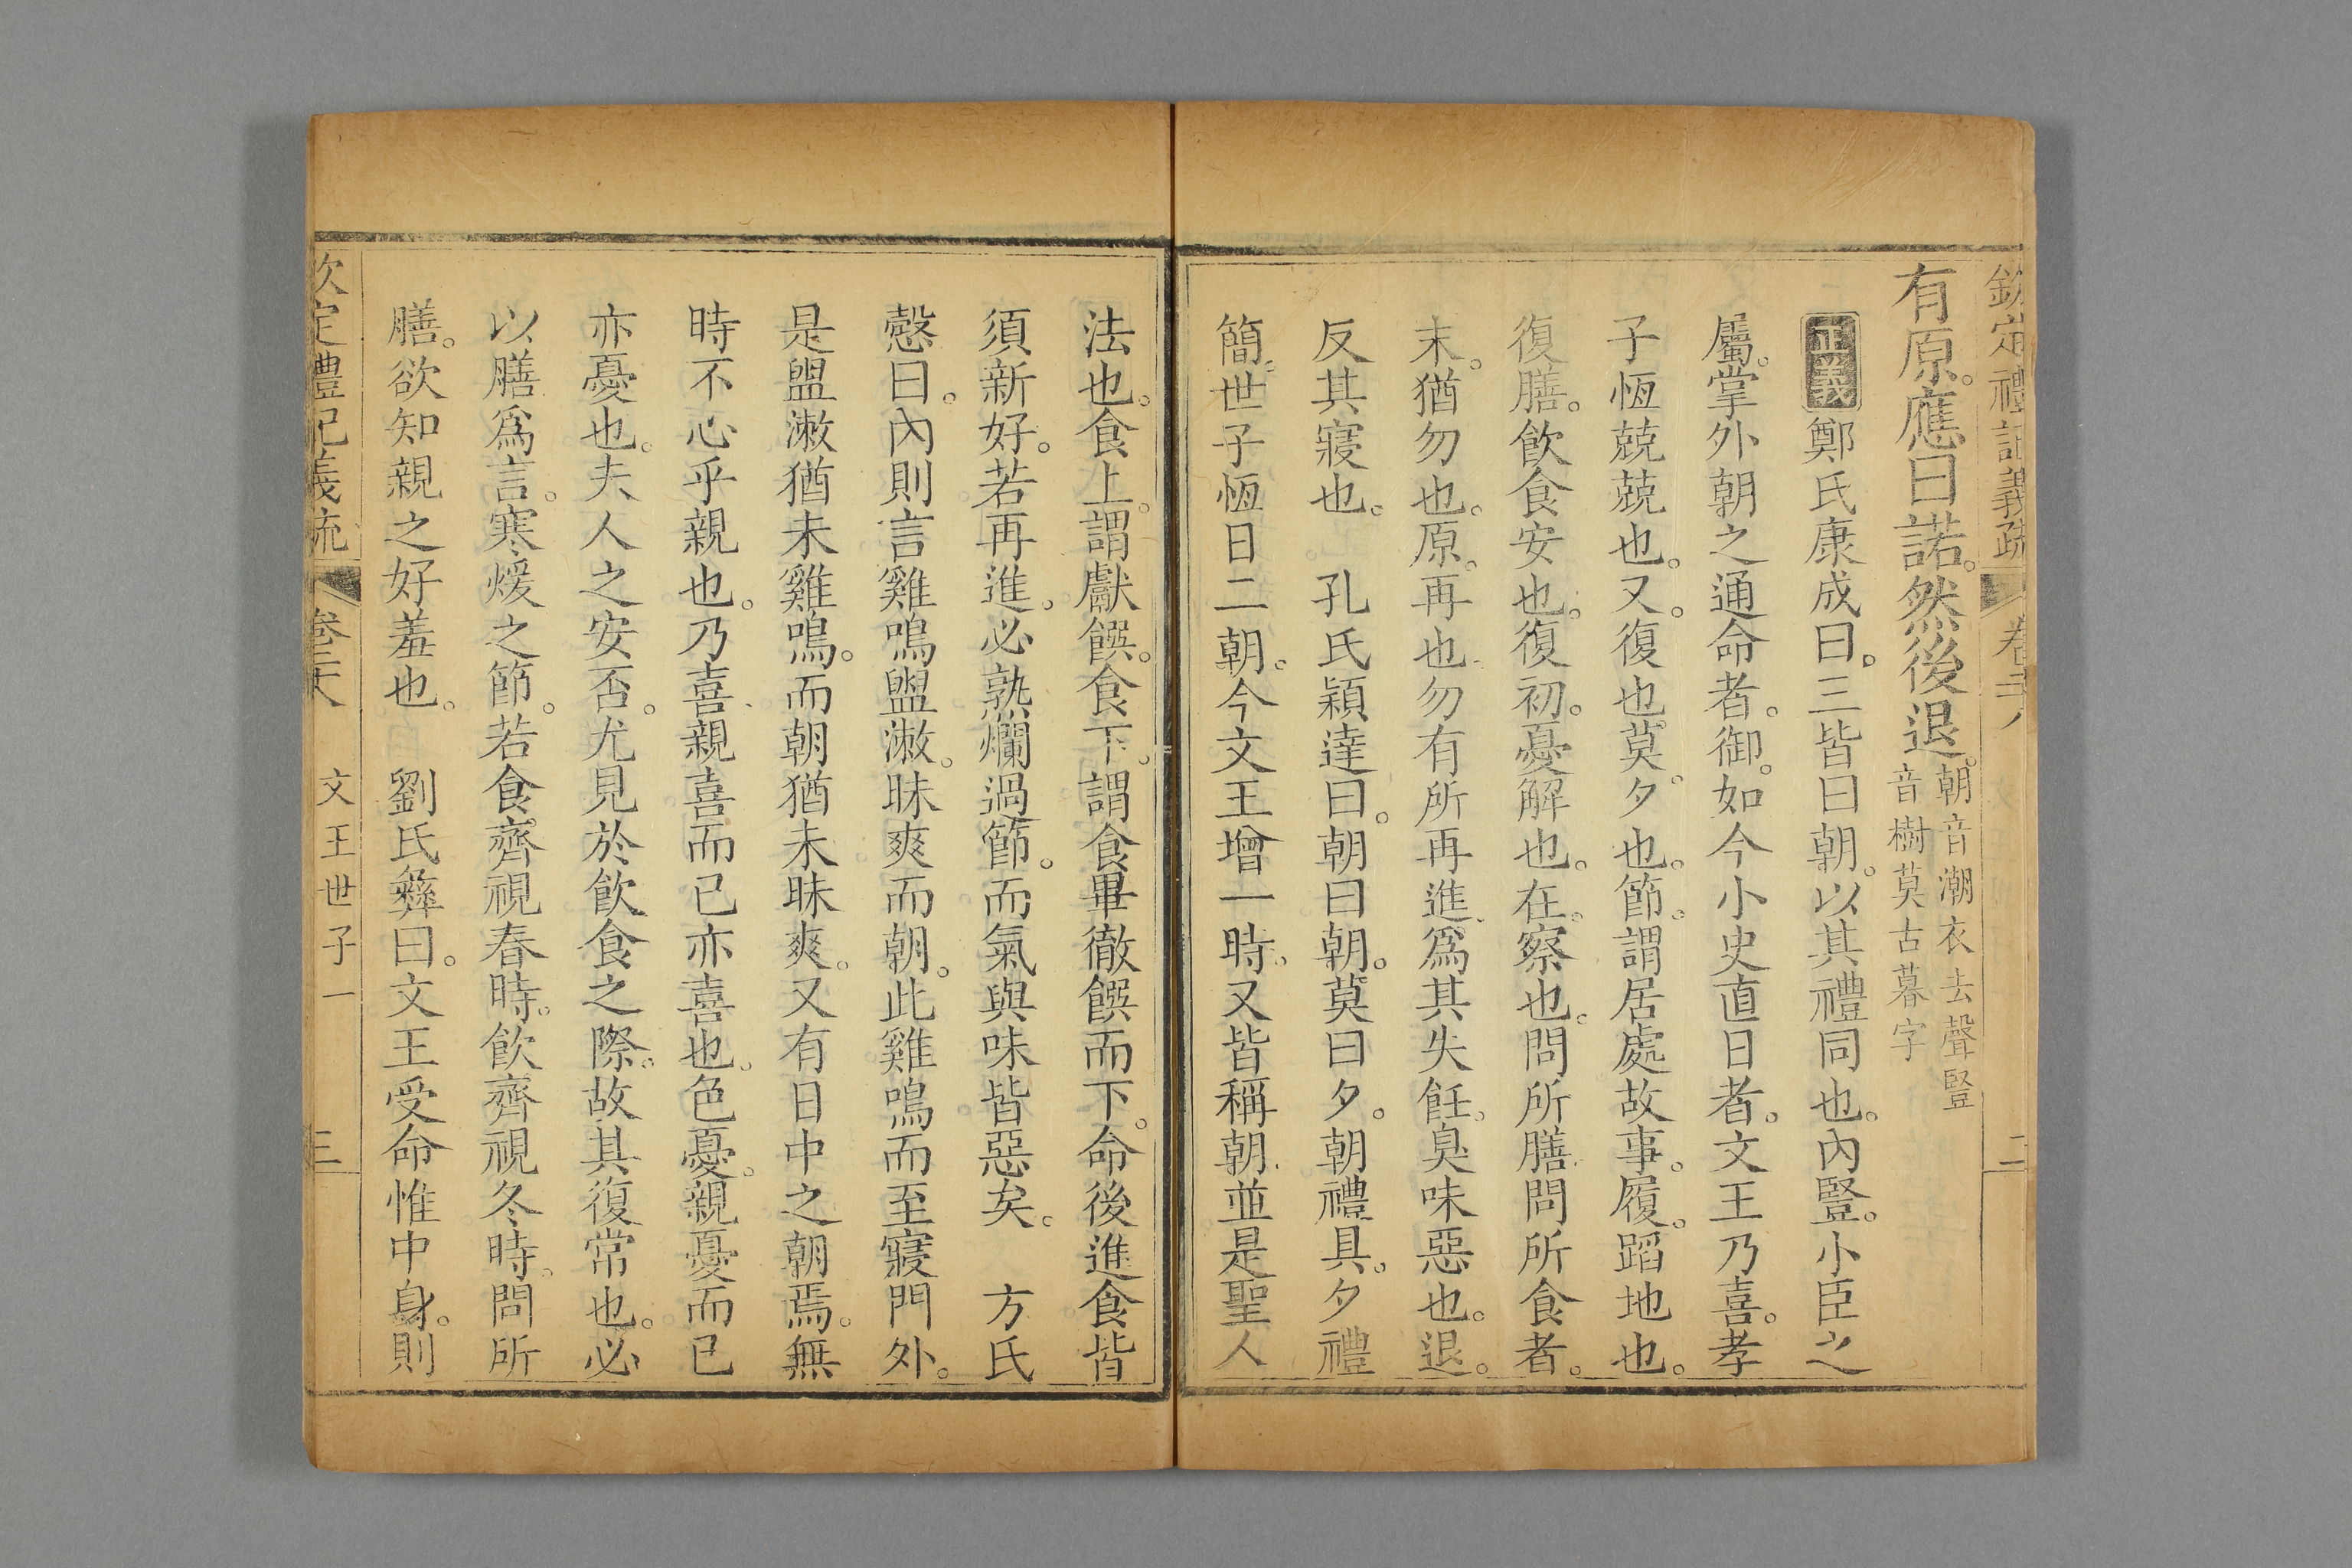 欽定禮記義疏 卷二十八 二
有原。應曰諾。然後退。朝音潮衣去聲豎
音樹莫古暮字
正義鄭氏康成曰。三皆曰朝。以其禮同也。內豎。小臣之
屬。掌外朝之通命者。御。如今小史直日者。文王乃喜。孝
子恆兢兢也。又。復也。莫。夕也。節。謂居處故事。履。蹈地也。
復膳。飲食安也。復初。憂解也。在。察也。問所膳。問所食者。
末。猶勿也。原。再也。勿有所再進。爲其失飪。臭味惡也。退。
反其寢也。 孔氏穎達曰。朝曰朝。莫曰夕。朝禮具。夕禮
簡。世子恆日二朝。今文王增一時。又皆稱朝。並是聖人
法也。食上。謂獻饌。食下。謂食畢徹饌而下。命後進食皆
須新好。若再進。必熟爛過節。而氣與味皆惡矣。 方氏
慤曰。內則言雞鳴盥漱。昧爽而朝。此雞鳴而至寢門外。
是盥漱猶未雞鳴。而朝猶未昧爽。又有日中之朝焉。無
時不心乎親也。乃喜。親喜而已亦喜也。色憂。親憂而已
亦憂也。夫人之安否。尤見於飲食之際。故其復常也。必
以膳爲言。寒煖之節。若食齊視春時。飲齊視冬時。問所
膳。欲知親之好羞也。 劉氏彝曰。文王受命惟中身。則
欽定禮記義疏 卷二十八 文王世子一 三